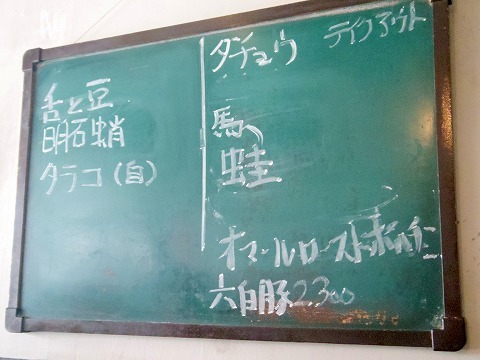 舌と豆
明石蛸
タラコ(自)
ダチョウ テイクアウト
馬
蛙
オマールロースト
六白豚2300